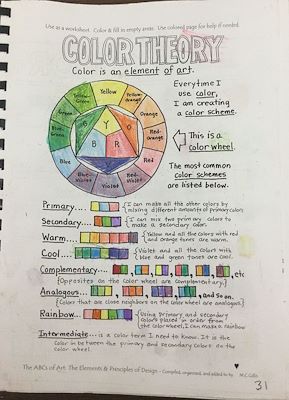 Use as a worksheet. Color & fill in empty areas. Use colored page for help if needed.
COLOR THEORY
Color is an element of art.
Everytime I
use color,
I am creating
a color scheme.
This is a
color wheel.
The most common
color schemes
are listed below.
Yellow
Yellow-
Orange
Orange
Red-
Orange
Red
Red-
Violet
Violet
Blue-
Violet
Blue
Blue-
Green
Green
Yellow-
Green
Y
B
R
Primary....
I can make all the other colors by
mixing different amounts of primary colors
Secondary....
I can mix two primary colors to
make a secondary color.
Warm...
Yellow and all the colors with red
and orange tones are warm.
Cool...
Violet and all the colors with
blue and green tones are cool.
Complementary.... , etc
(Opposites on the color wheel are complementary.)
Analogous.... , and so on.
(Colors that are close neighbors on the color wheel are analogous.)
Rainbow....
Using primary and secondary
colors placed in order from
the color wheel, I can make a rainbow
Intermediate.... is a color term I need to know. It is the
color in between the primary and secondary colors on the
color wheel.
The ABCs of Art. The Elements & Principles of Design - Compiled, organized, and added to by M.C. Gillis
31